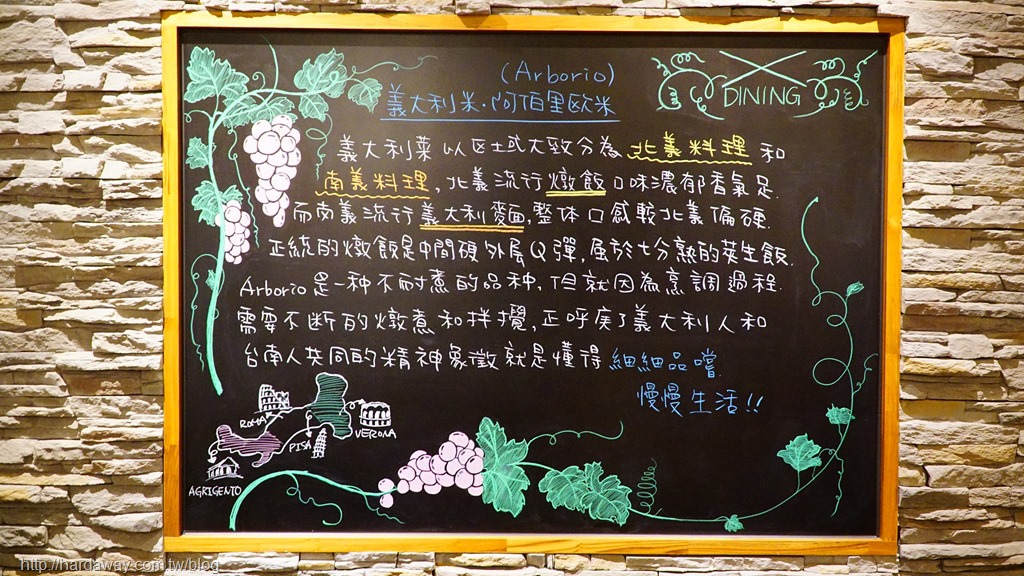 (Arborio)
義大利米·阿伯里歐米
DINING
義大利菜以区域大致分為北義料理和
南義料理,北義流行燉飯口味濃郁香氣足.
而南義流行義大利麵,整体口感較北義偏硬.
正統的燉飯是中間硬外层Q彈,屬於七分熟的萊生飯.
Arborio是一种不耐煮的品种,但就因為烹調過程
需要不断的燉煮和拌攪,正呼应了義大利人和
台南人共同的精神象徵就是懂得細細品嚐
慢慢生活!!
ROMA
VERONA
PISA
AGRIGENTO
http://hardaway.com.tw/blog